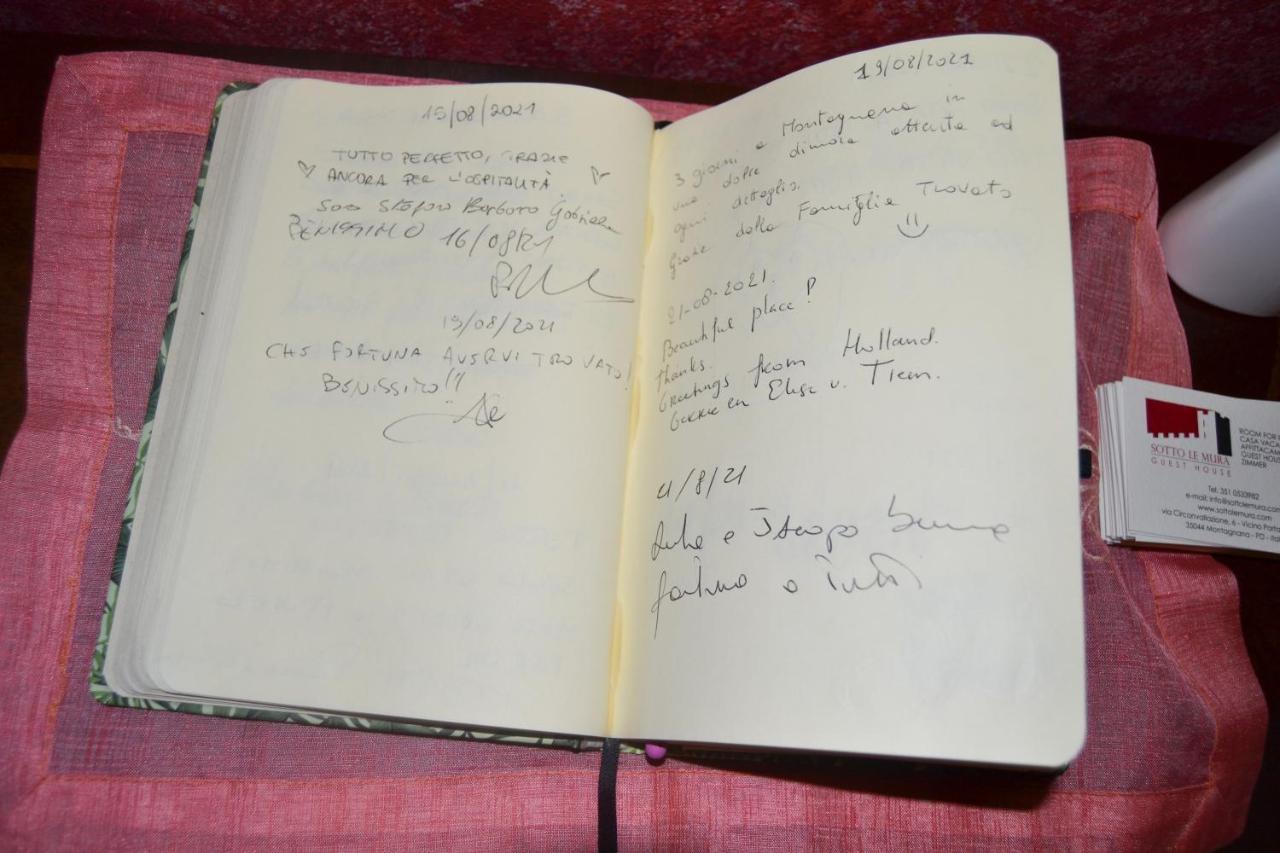 15/08/2021
TUTTO PERFETTO, GRAZIE
ANCORA PER L'OSPITALITÀ
Stefano Barbara Gabriele
BENISSIMO 16/08/21
19/08/2021
CHE FORTUNA AVERVI TROVATO!
BENISSIMO!!
19/08/2021
3 giorni a Montagnana in
una dolce dimora attenta ad
ogni dettaglio.
Grazie dalla Famiglia Trovato
21-08-2021.
Beautiful place!
thanks.
Greetings from Holland.
en Elise v. Tieen.
21/8/21
e buona
fortuna a Tutti
SOTTO LE MURA
GUEST HOUSE
ROOM FOR
CASA VACA
AFFITTACAM
GUEST HOUS
ZIMMER
Tel. 351 0533982
e-mail: info@sottolemura.com
www.sottolemura.com
via Circonvallazione, 6 - Vicino Por
35044 Montagnana - PD - Ital